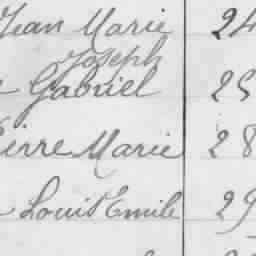 Jean Marie 24
Joseph
Gabriel 25
Pierre Marie 28
Louis Emile 29